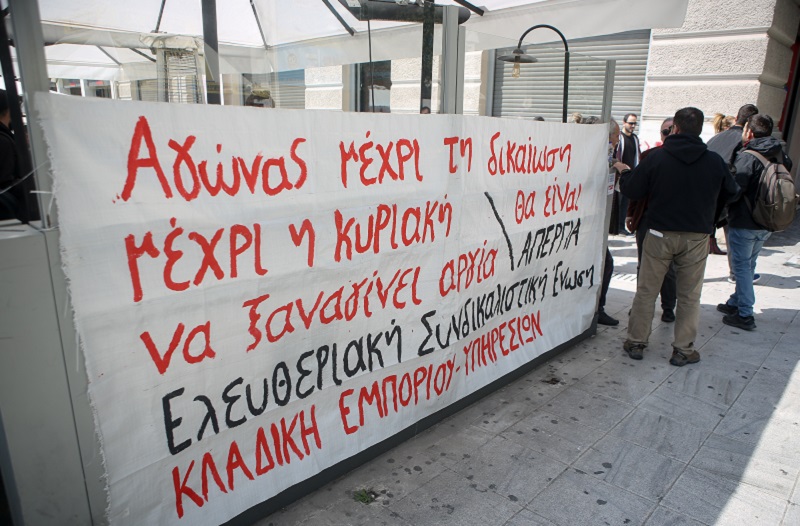 Αγώνας μέχρι τη δικαίωση
μέχρι η κυριακή \ θα είναι
να ξαναγίνει αργία \ ΑΠΕΡΓΙΑ
Ελευθεριακή Συνδικαλιστική Ένωση
ΚΛΑΔΙΚΗ ΕΜΠΟΡΙΟΥ-ΥΠΗΡΕΣΙΩΝ